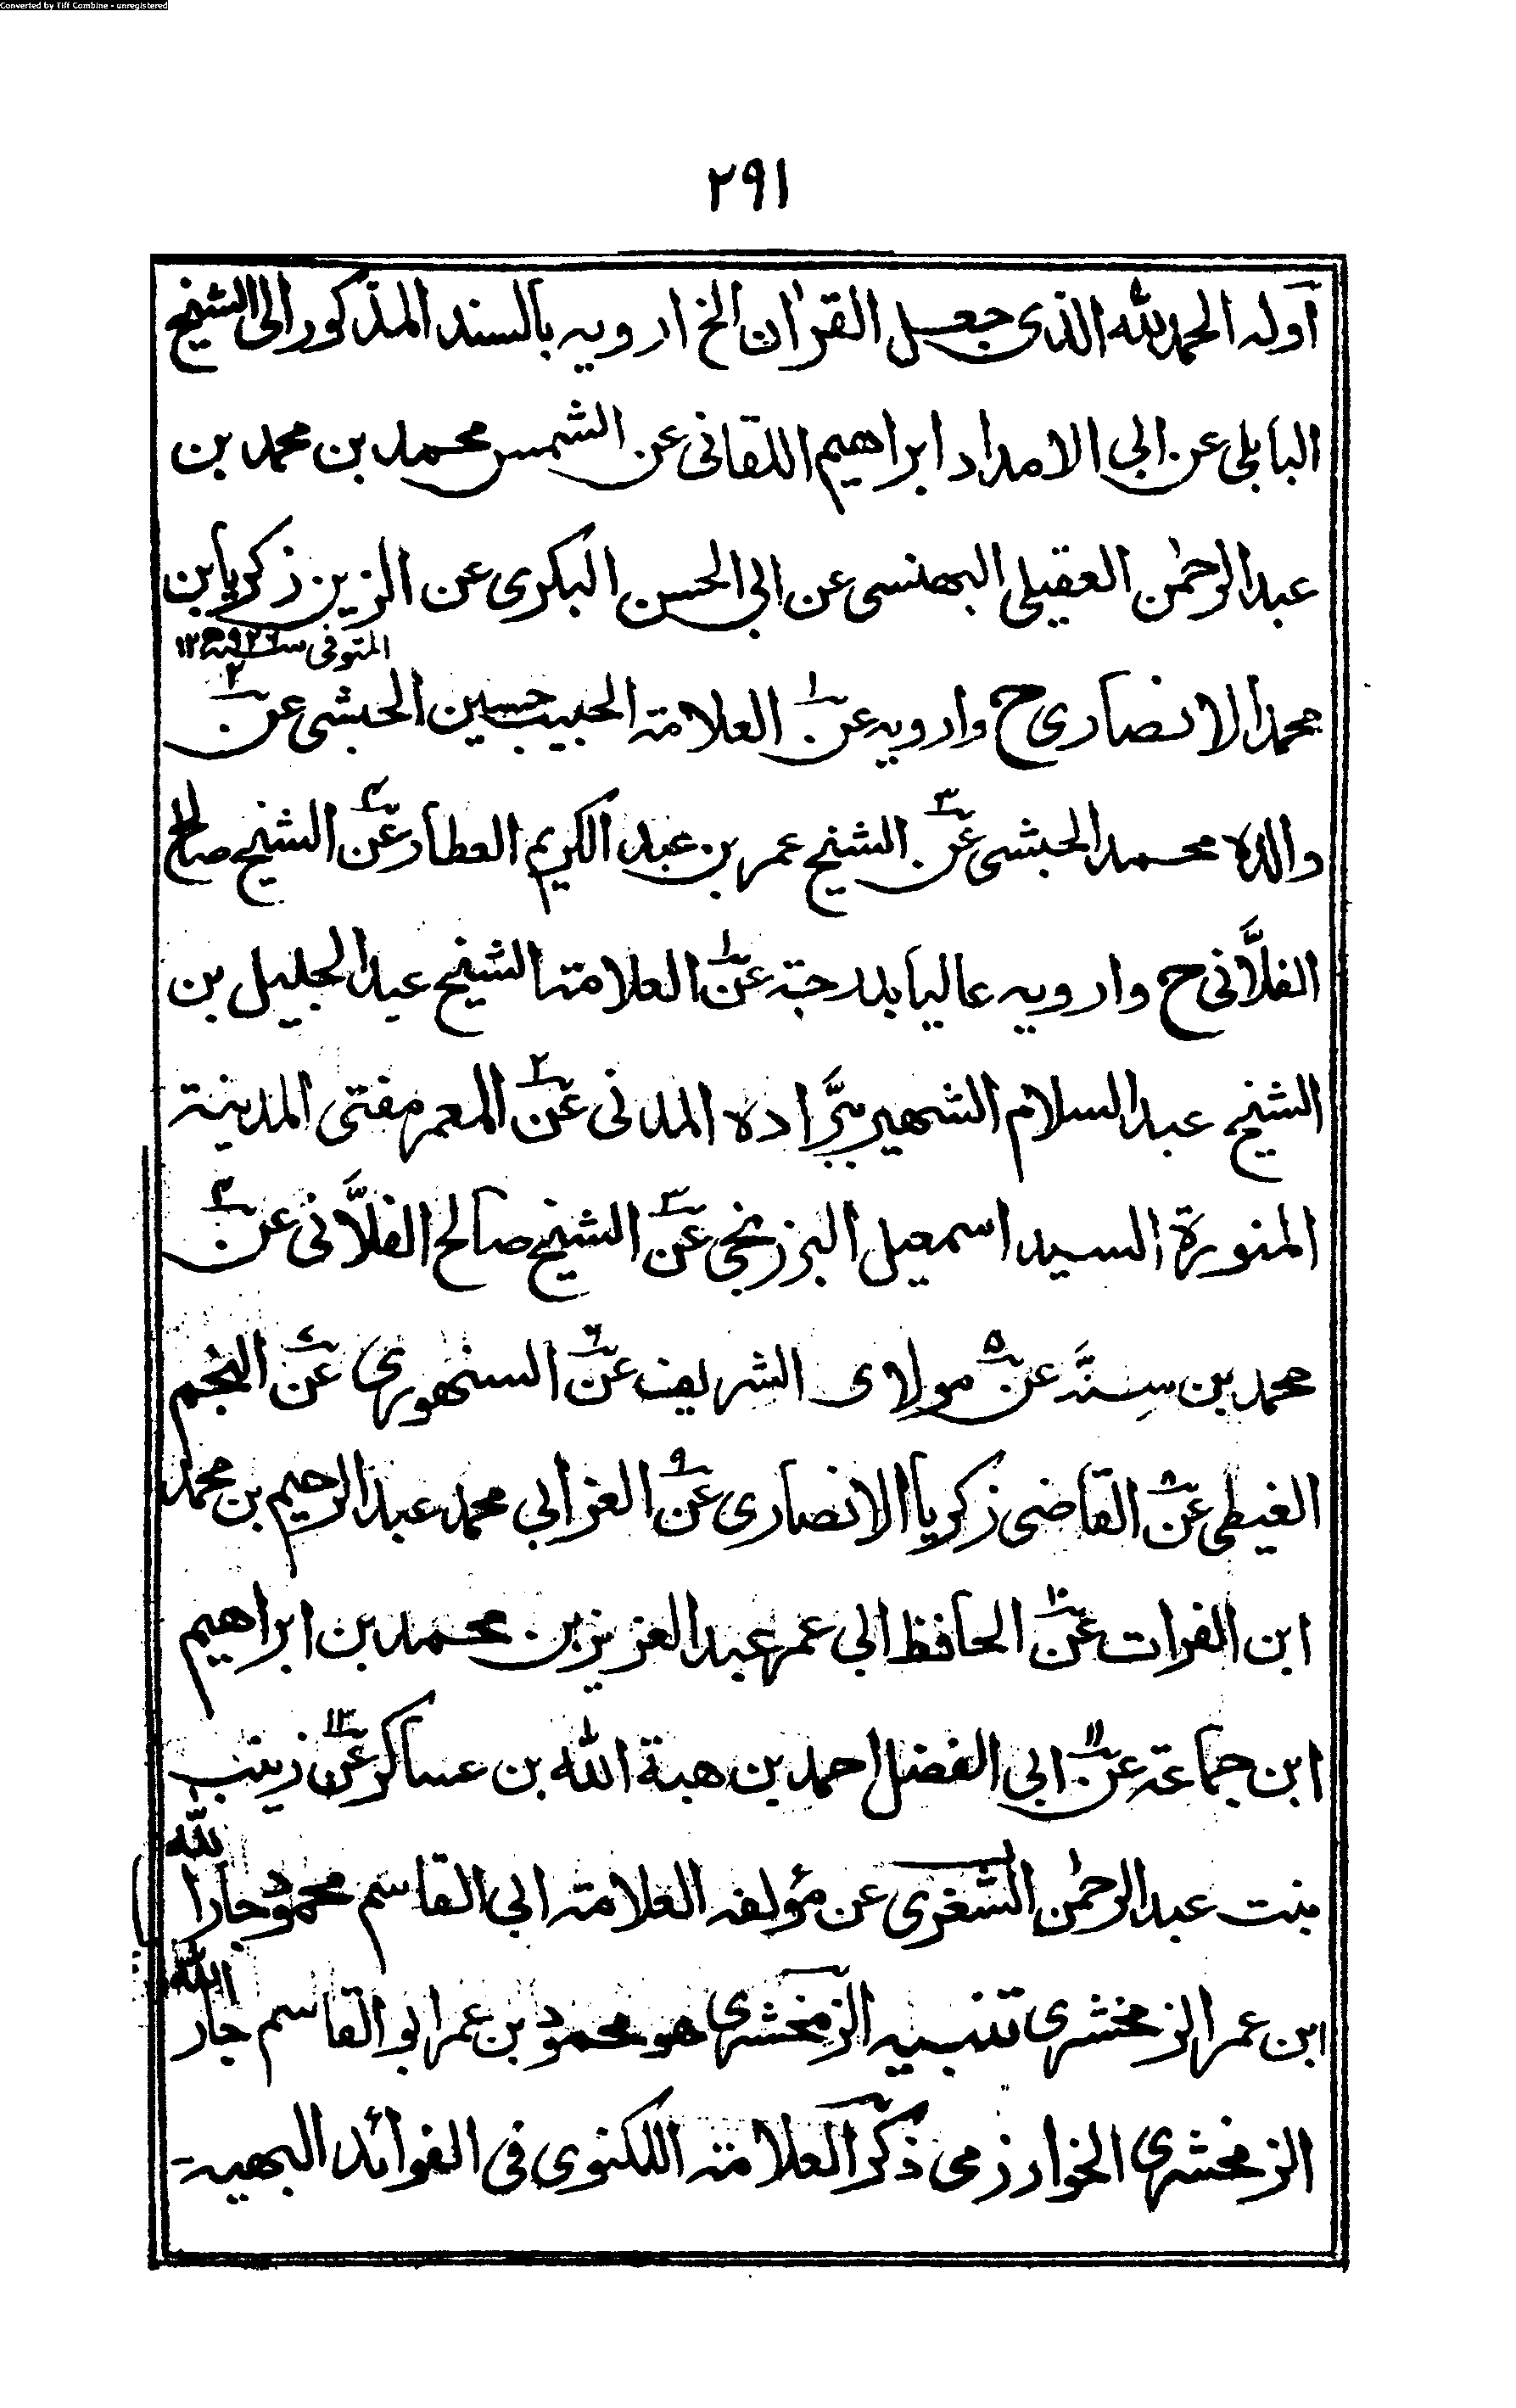 Converted by Tiff Combine - unregistered
٢٩١
اوله الحمد لله الذى جعل القرآن الخ ارويه بالسند المذكور الى الشيخ
البابلى عن ابى الامداد ابراهيم اللقانى عن الشمس محمد بن محمد بن
عبد الرحمٰن العقيلى البهنسى عن ابى الحسن البكرى عن الزين زكريا بن
المتوفى سنة ٩٢٦ھ ١٢
محمد الانصارى ح وارويه عن١ العلامة الحبيب حسين الحبشى عن٢
والده محمد الحبشى عن٣ الشيخ عمر بن عبد الكريم العطار عن٤ الشيخ صالح
الفلَّانى ح وارويه عاليا بدرجة عن١ العلامة الشيخ عبد الجليل بن
الشيخ عبد السلام الشهير ببَرَّاده المدنى عن٢ المعمر مفتى المدينة
المنورة السيد اسمعيل البرزنجى عن٣ الشيخ صالح الفلَّانى عن٤
محمد بن سِنَّه عن٥ مولاى الشريف عن٦ السنهورى عن٧ النجم
الغيطى عن٨ القاضى زكريا الانصارى عن٩ العز ابى محمد عبد الرحيم بن محمد
ابن الفرات عن١٠ الحافظ ابى عمر عبد العزيز بن محمد بن ابراهيم
ابن جماعة عن١١ ابى الفضل احمد بن هبة الله بن عساكر عن١٢ زينب
بنت عبد الرحمٰن الشغرى عن مؤلفه العلامة ابى القاسم محمود جار الله
ابن عمر الزمخشرى تنبيه الزمخشرى هو محمود بن عمر ابو القاسم جار الله
الزمخشرى الخوارزمى ذكر العلامة اللكنوى فى الفوائد البهية